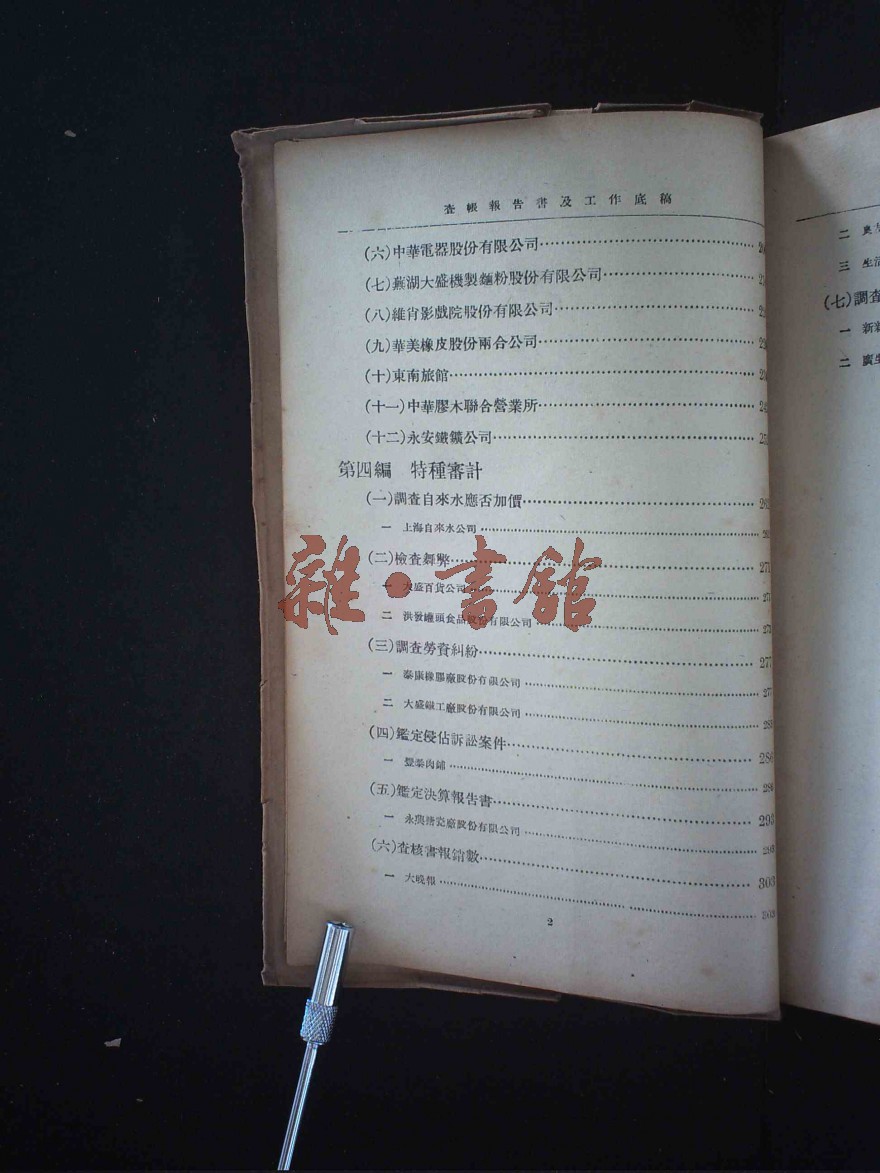 查帳報告書及工作底稿
(六)中華電器股份有限公司
(七)蕪湖大盛機製麵粉股份有限公司
(八)維肖影戲院股份有限公司
(九)華美橡皮股份兩合公司
(十)東南旅館
(十一)中華膠木聯合營業所
(十二)永安鐵鑛公司
第四編 特種審計
(一)調查自來水應否加價
一 上海自來水公司
(二)檢查舞弊 271
一 盛百貨公司
二 洪發罐頭食品股份有限公司
(三)調查勞資糾紛 277
一 泰康橡膠廠股份有限公司
二 大盛鐵工廠股份有限公司
(四)鑑定侵佔訴訟案件 286
一 肉鋪
(五)鑑定決算報告書 293
一 永興搪瓷廠股份有限公司
(六)查核書報銷數 303
一 大晚報 303
2
雜·書館
二
三 生活
(七)調查
一 新
二 廣